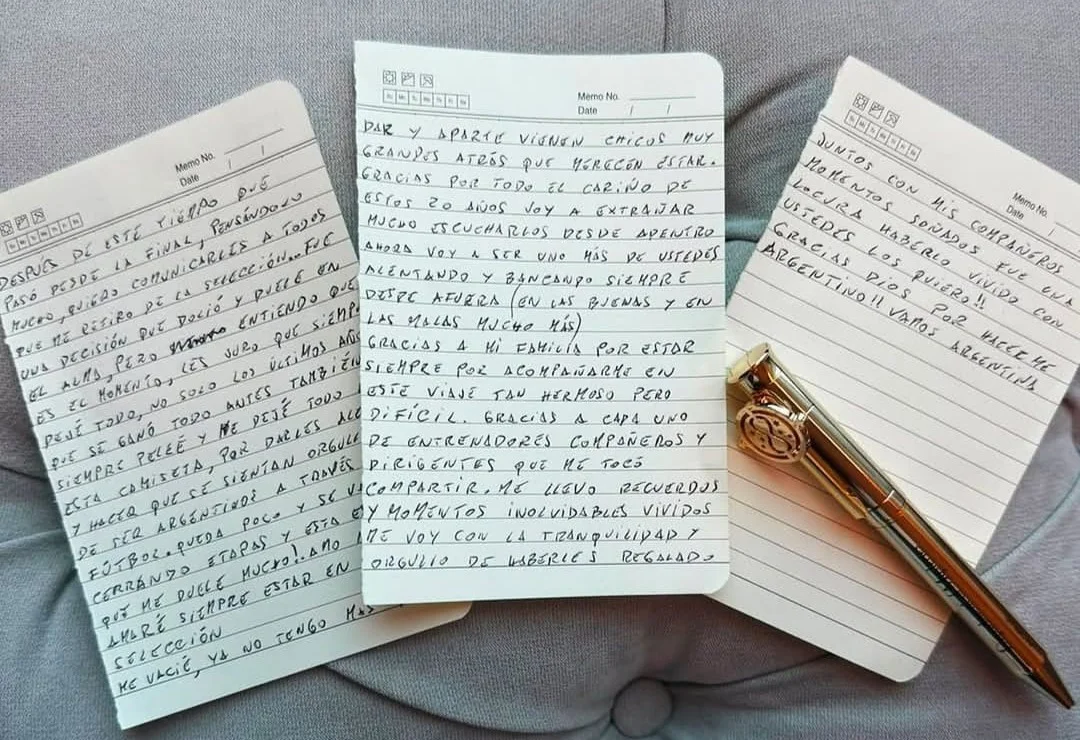 Memo No.
Date / /
DESPUÉS DE ESTE TIEMPO QUE
PASÓ DESDE LA FINAL, PENSÁNDOLO
MUCHO, QUIERO COMUNICARLES A TODOS
QUE ME RETIRO DE LA SELECCIÓN... FUE
UNA DECISIÓN QUE DOLIÓ Y DUELE EN
EL ALMA, PERO ENTIENDO QUE
ES EL MOMENTO, LES JURO QUE SIEMP
DEJÉ TODO, NO SOLO LOS ÚLTIMOS AÑOS
QUE SE GANÓ TODO ANTES TAMBIÉN
SIEMPRE PELEÉ Y DEJÉ TODO
ESTA CAMISETA, POR DARLES ALE
Y HACER QUE SE SIENTAN ORGULL
DE SER ARGENTINOS A TRAVÉS
FÚTBOL. QUEDA POCO Y SE VA
CERRANDO ETAPAS Y ESTA E
QUE ME DUELE MUCHO!. AMO
AMARÉ SIEMPRE ESTAR EN
SELECCIÓN
ME VACIÉ, YA NO TENGO MAS
Memo No.
Date / /
DAR Y APARTE VIENEN CHICOS MUY
GRANDES ATRÁS QUE MERECEN ESTAR.
GRACIAS POR TODO EL CARIÑO DE
ESTOS 20 AÑOS VOY A EXTRAÑAR
MUCHO ESCUCHARLOS DESDE ADENTRO
AHORA VOY A SER UNO MÁS DE USTEDES
ALENTANDO Y BANCANDO SIEMPRE
DESDE AFUERA (EN LAS BUENAS Y EN
LAS MALAS MUCHO MÁS)
GRACIAS A MI FAMILIA POR ESTAR
SIEMPRE POR ACOMPAÑARME EN
ESTE VIAJE TAN HERMOSO PERO
DIFÍCIL. GRACIAS A CADA UNO
DE ENTRENADORES COMPAÑEROS Y
DIRIGENTES QUE ME TOCÓ
COMPARTIR. ME LLEVO RECUERDOS
Y MOMENTOS INOLVIDABLES VIVIDOS
ME VOY CON LA TRANQUILIDAD Y
ORGULLO DE HABERLES REGALADO
Memo No.
Date /
JUNTOS CON MIS COMPAÑEROS
MOMENTOS SOÑADOS FUE UNA
LOCURA HABERLO VIVIDO CON
USTEDES LOS QUIERO!!
GRACIAS DIOS POR HACERME
ARGENTINO!! VAMOS ARGENTINA